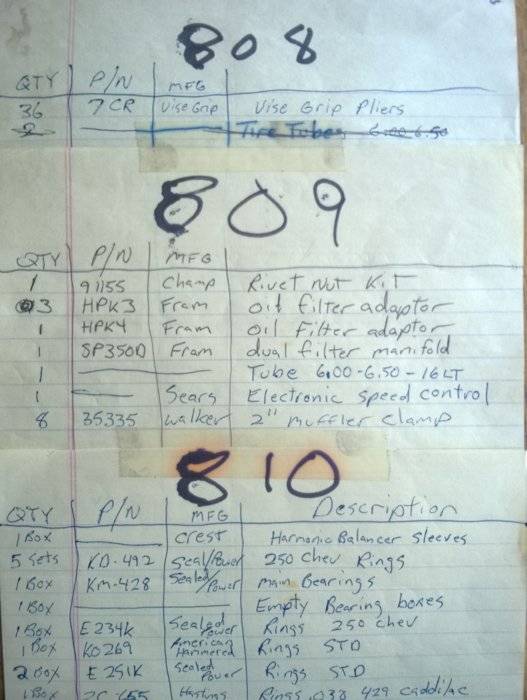 808
QTY P/N MFG
36 7CR Vise Grip Vise Grip Pliers
2 Tire Tubes 6.00 6.50
809
QTY P/N MFG
1 91155 Champ Rivet Nut Kit
3 HPK3 Fram oil filter adaptor
1 HPK4 Fram oil Filter adaptor
1 SP350D Fram dual filter manifold
1 Tube 6.00-6.50-16LT
1 Sears Electronic speed control
8 35335 Walker 2" muffler clamp
810
QTY P/N MFG Description
1 Box Crest Harmonic Balancer Sleeves
5 sets KD-492 Seal/Power 250 Chev Rings
1 Box KM-428 Sealed/Power main Bearings
1 Box Empty Bearing boxes
1 Box E234K Sealed Power Rings 250 chev
1 Box KD269 American Hammered Rings STD
2 Box E251K Sealed Power Rings STD
1 Box Hastings Rings 429